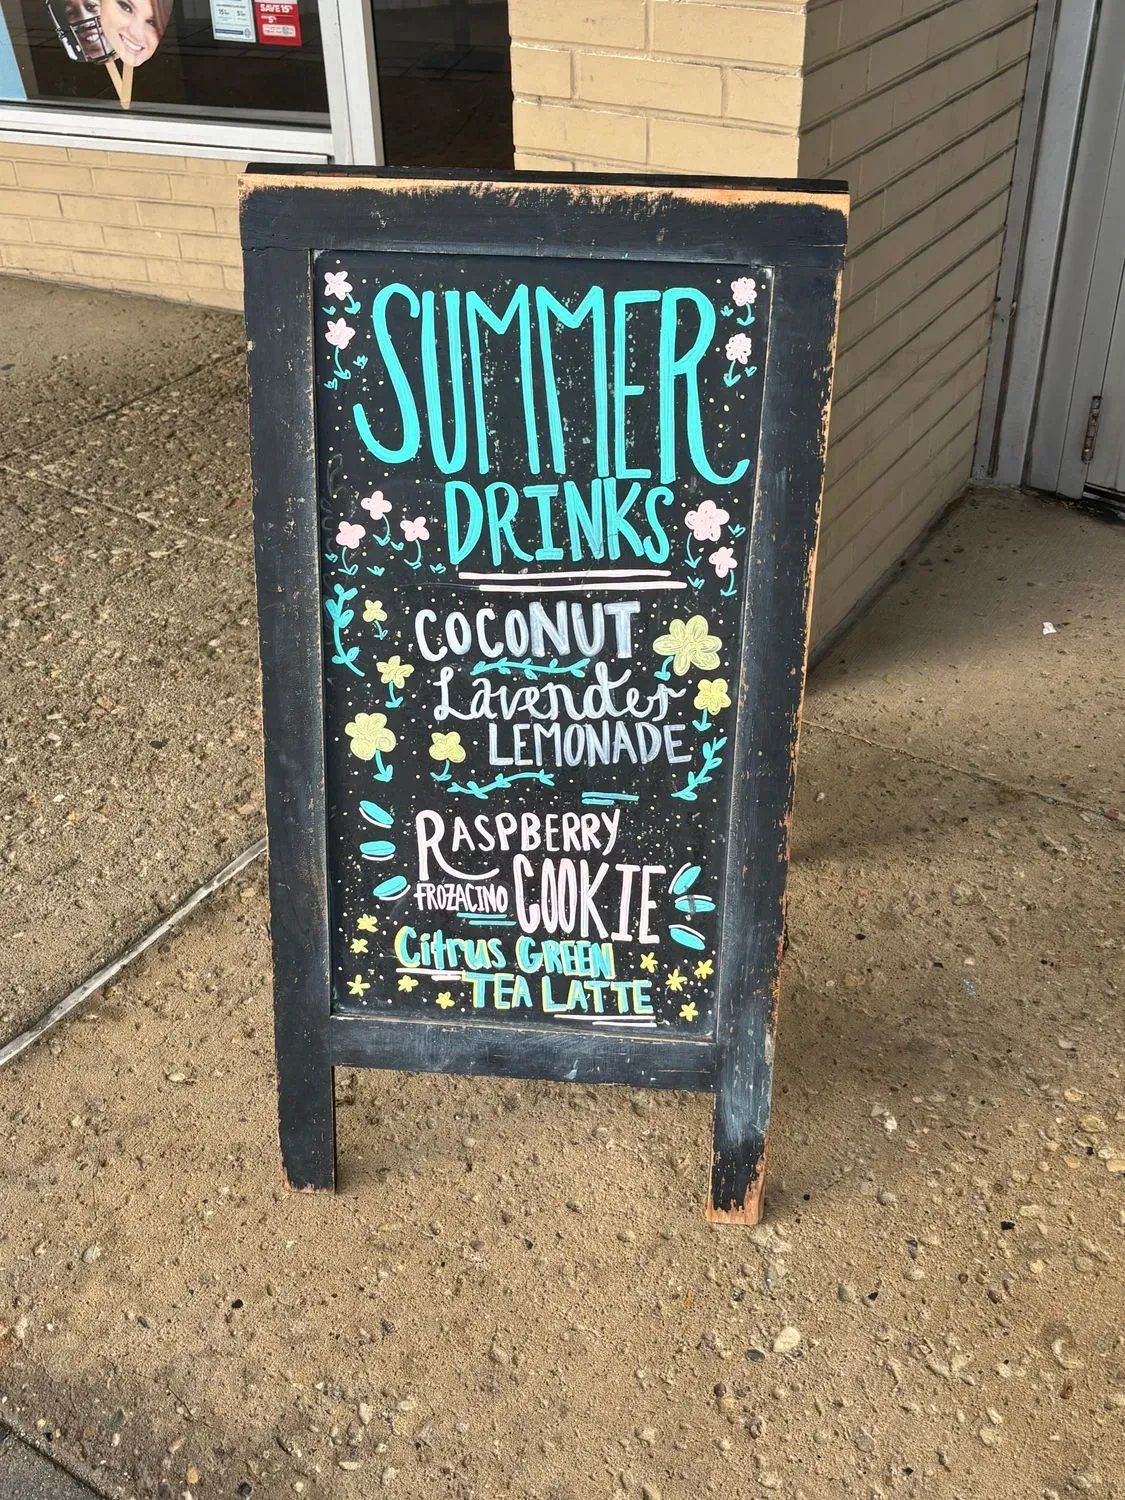 SAVE 15%
5%
SUMMER
DRINKS
COCONUT
Lavender
LEMONADE
RASPBERRY
FROZACINO COOKIE
Citrus GREEN
TEA LATTE